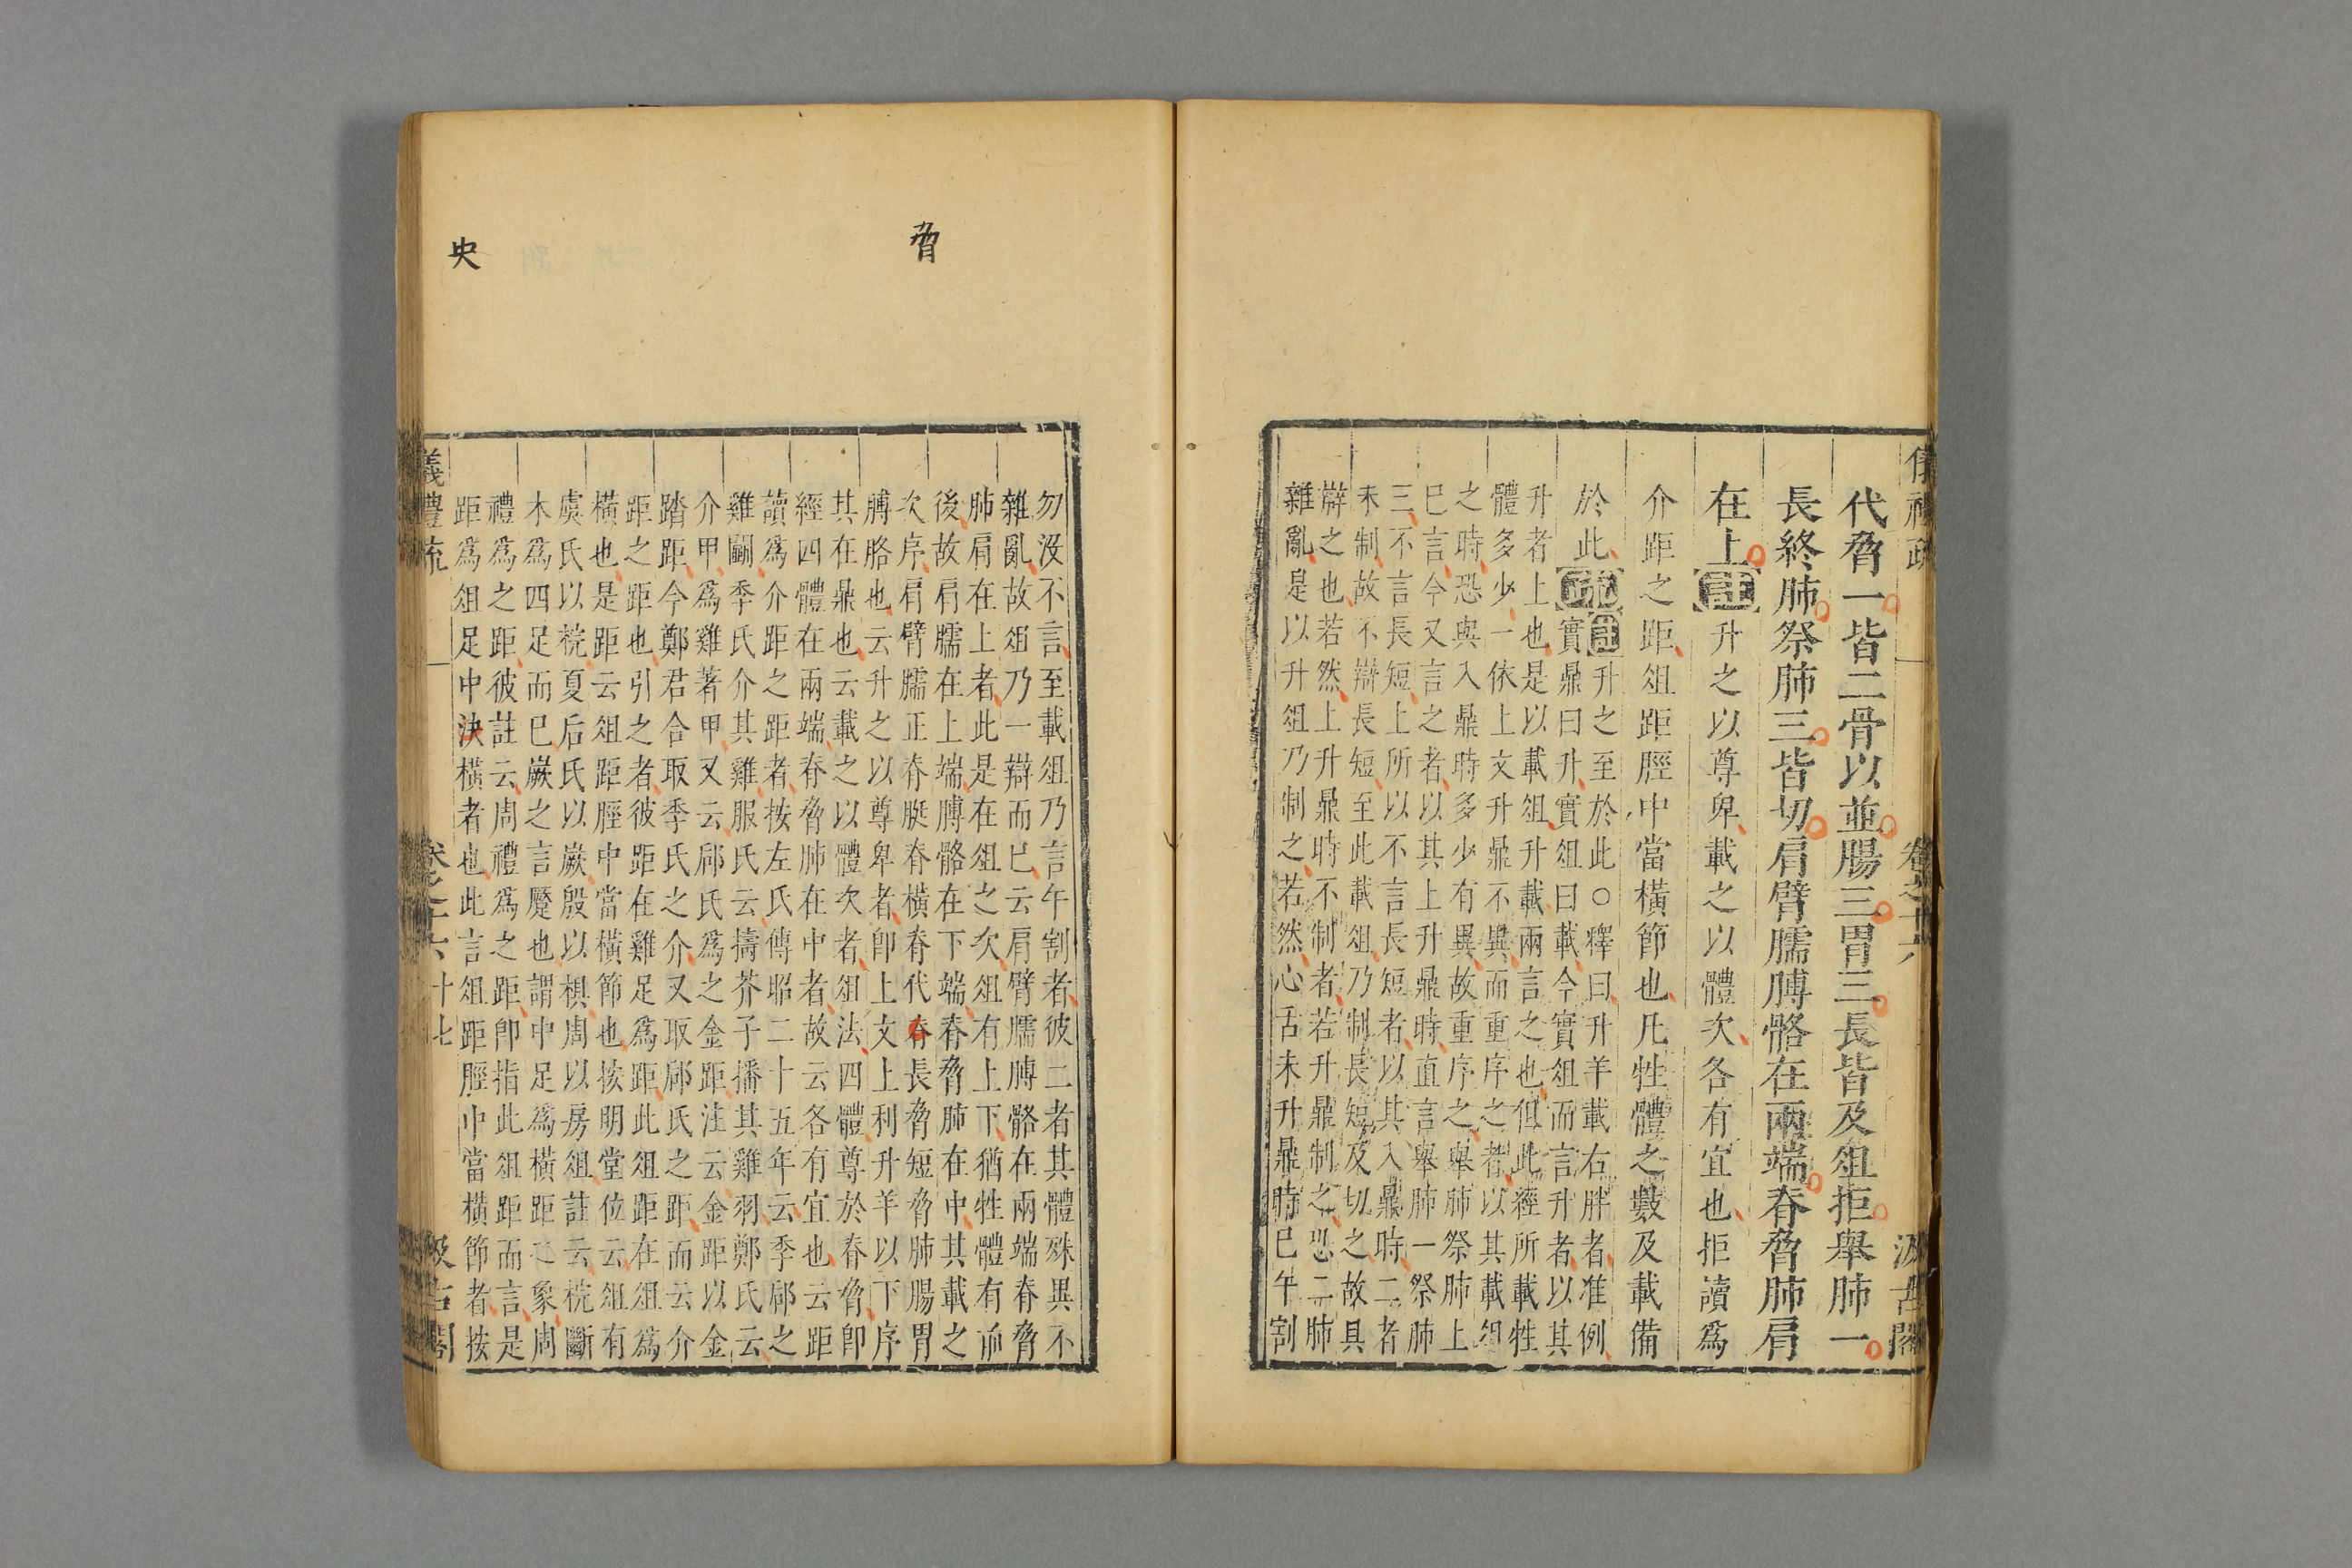 代脅一皆二骨以並腸三胃三長皆及俎拒舉肺一
長終肺祭肺三皆切肩臂臑膊骼在兩端脊脅肺肩
在上註升之以尊卑載之以體次各有宜也拒讀爲
介距之距俎距脛中當橫節也凡牲體之數及載備
於此疏註升之至於此○釋曰升羊載右胖者准例
實鼎曰升實俎曰載今實俎而言升者以其
升者上也是以載俎升載兩言之也但此經所載牲
體多少一依上文升鼎不異而重序之者以其載俎
之時恐與入鼎時多少有異故重序之舉肺祭肺上
已言今又言之者以其上升鼎時直言舉肺一祭肺
三不言長短上所以不言長短者以其入鼎時二者
未制故不辯長短至此載俎乃制長短及切之故具
辯之也若然上升鼎時不制者若升鼎制之恐二肺
雜亂是以升俎乃制之若然心舌未升鼎時已午割
勿沒不言至載俎乃言午割者彼二者其體殊異不
雜亂故俎乃一辯而已云肩臂臑膊骼在兩端脊脅
肺肩在上者此是在俎之次俎有上下猶牲體有前
後故肩臑在上端膊骼在下端脊脅肺在中其載之
次序肩臂臑正脊脡脊橫脊代脊長脅短脅肺腸胃
膊胳也云升之以尊卑者卽上文上利升羊以下序
其在鼎也云載之以體次者俎法四體尊於脊脅卽
經四體在兩端脊脅肺在中者故云各有宜也云距
讀爲介距之距者按左氏傳昭二十五年云季郈之
雞鬬季氏介其雞服氏云擣芥子播其雞羽鄭氏云
介甲爲雞著甲又云郈氏爲之金距注云金距以金
踏距今鄭君合取季氏之介又取郈氏之距而云介
距之距也引之者彼距在雞足爲距此俎距在俎爲
橫也是距云俎距脛中當橫節也按明堂位云俎有
虞氏以梡夏后氏以嶡殷以椇周以房俎註云梡斷
木爲四足而已嶡之言蹷也謂中足爲橫距之象周
禮爲之距彼註云周禮爲之距卽指此俎距而言是
距爲俎足中決橫者也此言俎距脛中當橫節者按
儀禮疏 卷之十六 十七 汲古閣
脅
央